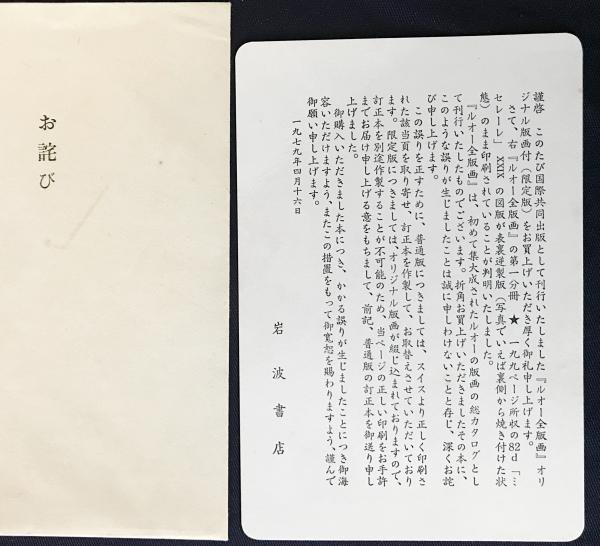 お詫び
謹啓　このたび国際共同出版として刊行いたしました『ルオー全版画』オリ
ジナル版画付（限定版）をお買上げいただき厚く御礼申し上げます。
さて、右『ルオー全版画』の第一分冊　★　一九九ページ所収の82d「…
セレーレ」　XXIXの図版が表裏逆製版（写真でいえば裏側から焼き付けた状
態）のまま印刷されていることが判明いたしました。
『ルオー全版画』は、初めて集大成されたルオーの版画の総カタログとし
て刊行いたしたものでございます。折角お買上げいただきましたその本に、
このような誤りが生じましたことは誠に申しわけないことと存じ、深くお詫
び申し上げます。
この誤りを正すために、普通版につきましては、スイスより正しく印刷さ
れた該当頁を取り寄せ、訂正本を作製して、お取替えさせていただいており
ます。限定版につきましてはオリジナル版画が綴じ込まれておりますので、
訂正本を別途作製することが不可能のため、当ページの正しい印刷をお手許
までお届け申し上げる意をもちまして、前記、普通版の訂正本を御送り申し
上げました。
御購入いただきました本につき、かかる誤りが生じましたことにつき御海
容いただけますよう、またこの措置をもって御寛恕を賜わりますよう、謹んで
御願い申し上げます。
一九七九年四月十六日
岩波書店